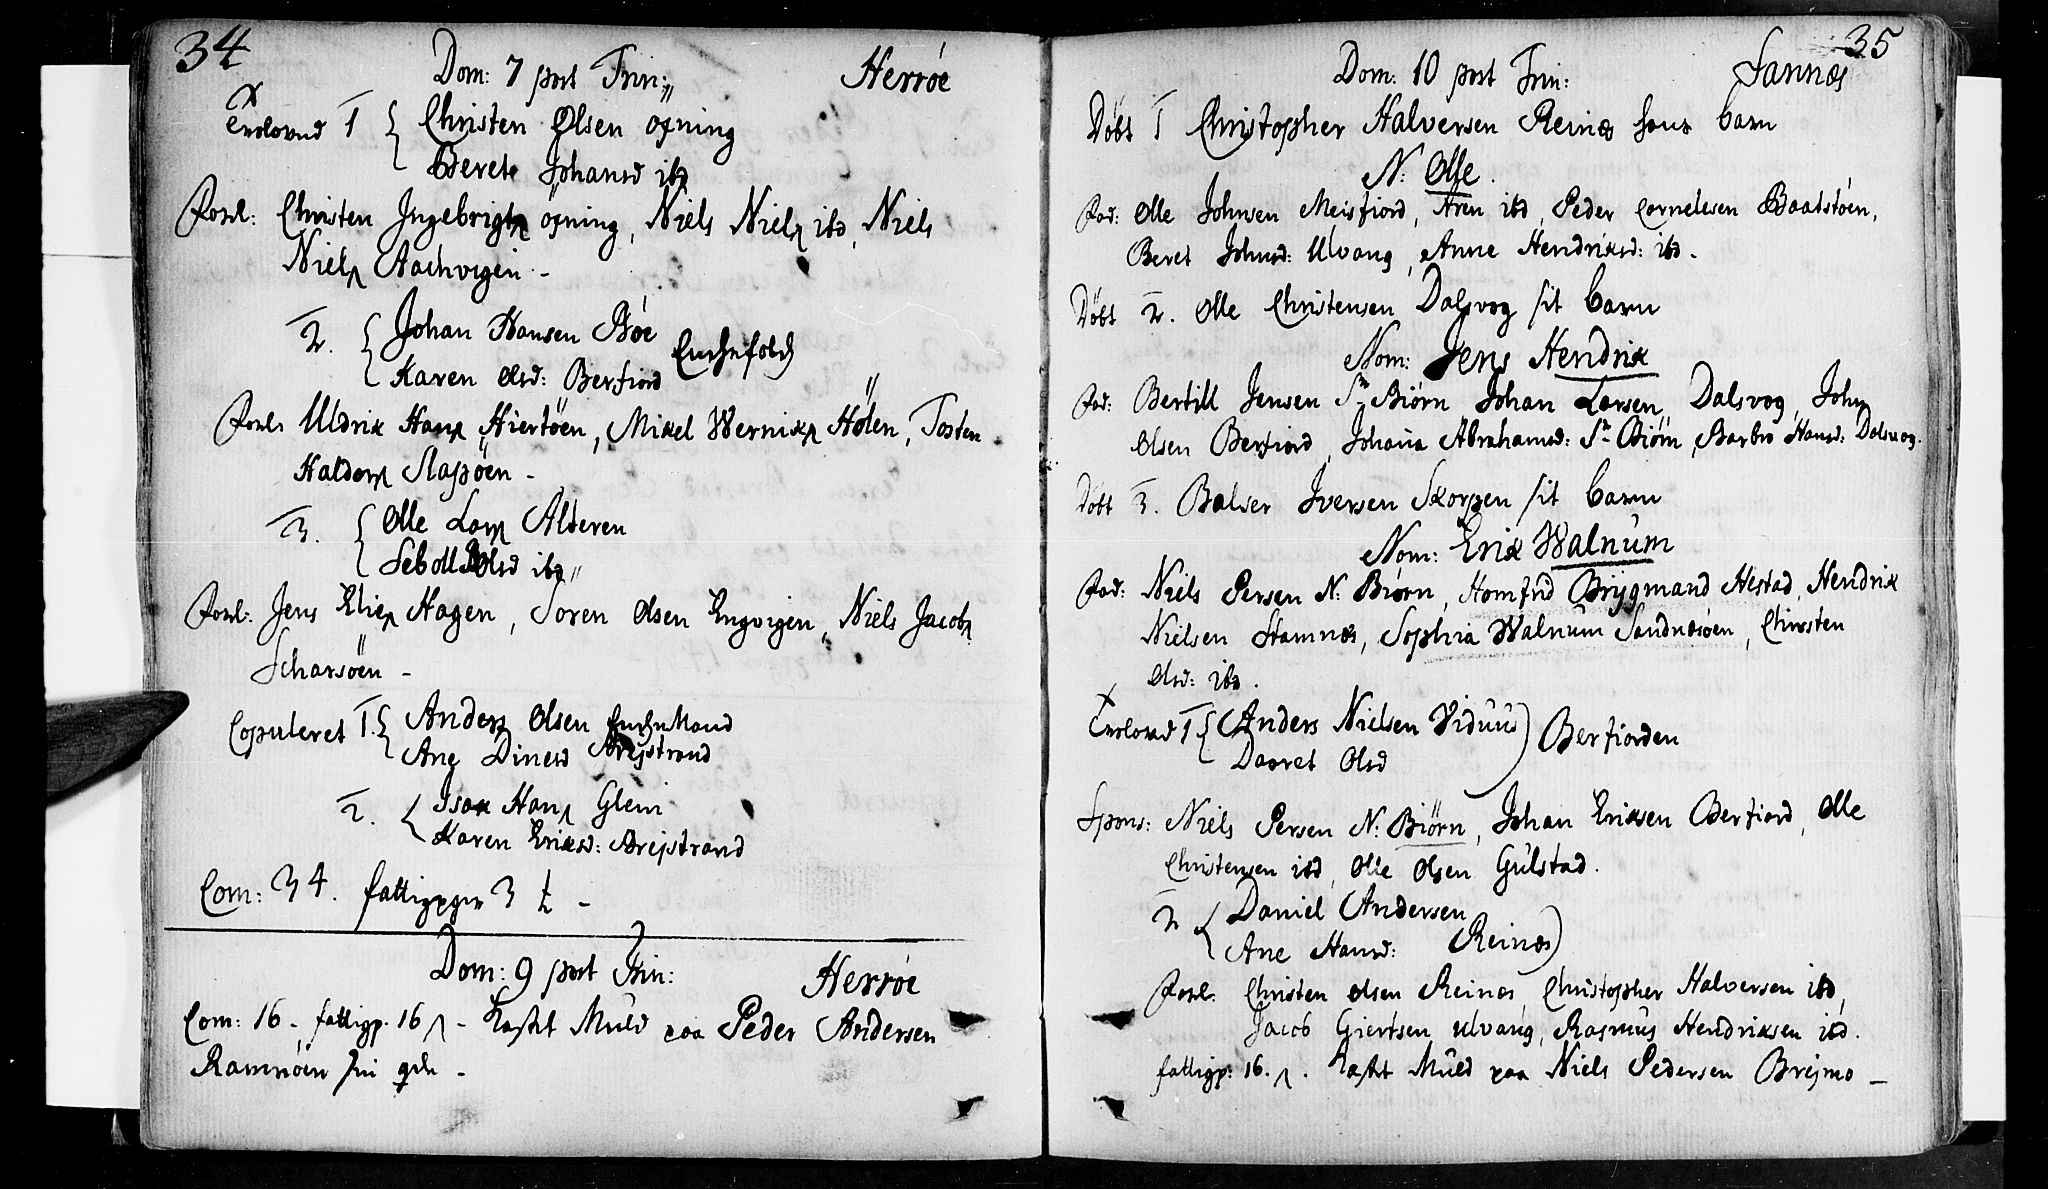 34
Dom: 7 post Trin: Herröe
Trolovud 1 { Christen Olsen opning
Berete Johansd ibd
Forl: Christen Ingebrigts opning, Niels Niels ibd, Niels
Niels Aachvigen -
2. { Johan Hansen Böe
Karen Olsd: Berfiord
Forl: Uldrik Hans Hiertöen, Mikel Werniks Hölen, Tosten
Haldors Slapöen -
3. { Olle Lars Alteren
Seboll Olsd ibd
Forl: Jens Elies Hagen, Sören Olsen Engvigen, Niels Jacobs
Scharsöen -
Copuleret 1. { Anders Olsen
Ane Dinesd Breijstrand
2. { Isak Hans Glein
Karen Eriksd: Breijstrand
Com: 34. fattigpge 3
Dom: 9 post Trin: Herröe
Com: 16 - fattigp. 16 s - Kastet Muld paa Peder Andersen
Ramnöen
35
Dom: 10 post Trin: Sannæs
Döbt 1 Christopher Halversen Reinæs hans barn
N: Olle.
Fad: Olle Johnsen Meisfiord, Aren ibd, Peder Cornelesen Baadstöen,
Beret Johnsd: Ulvang, Anne Hendriksd: ibd -
Döbt 2. Olle Christensen Dalsvog sit barn
Nom: Jens Hendrik
Fad: Bertill Jensen Sr Biörn Johan Larsen, Dalsvog, John
Olsen Berfiord, Johana Abrahamsd: Sr Biörn, Barbro Hansd: Dalsvog.
Döbt 3. Balser Iversen Skorpen sit barn
Nom: Erik Walnum
Fad: Niels Persen N: Biörn, Homfrid Brygmand Hestad, Hendrik
Nielsen Stamnes, Sophia Walnum Sandnæsöen, Chirsten
Olsd: ibd.
Trolovud 1 { Anders Nielsen Viduus ) Berfiorden
Daaret Olsd
Spons: Niels Persen N: Biörn, Johan Eriksen Berfiord, Olle
Christensen ibd, Olle Olsen Gulstad.
2 { Daniel Andersen
Ane Hansd: Reinæs )
Forl: Christen Olsen Reinæs, Christopher Halversen ibd,
Jacob Giertsen Ulvang, Rasmus Hendriksen ibd.
fattigp: 16. s. Kastet Muld paa Niels Pedersen Breijmo -